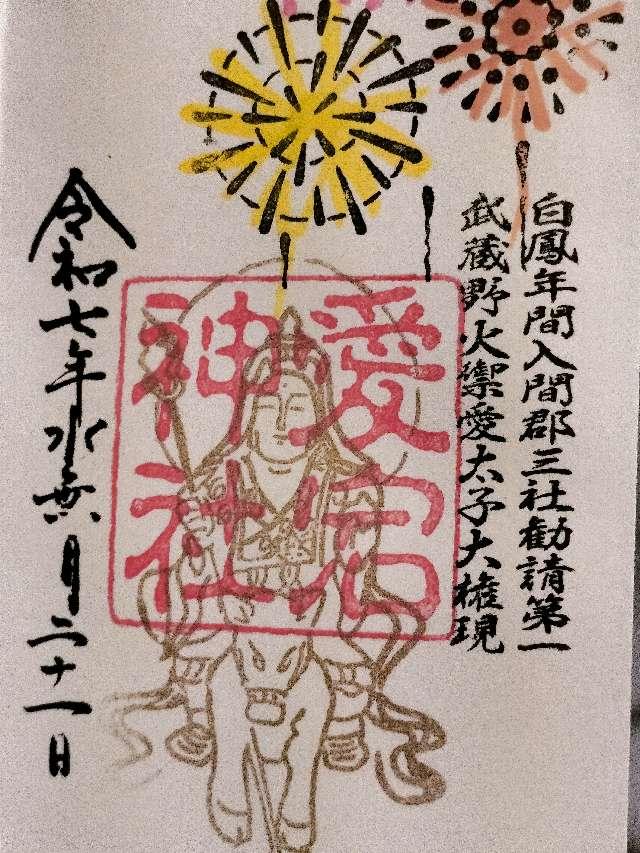 白鳳年間入間郡三社勧請第一
武蔵野火禦愛太子大権現
愛宕
神社
令和七年水無月二十一日